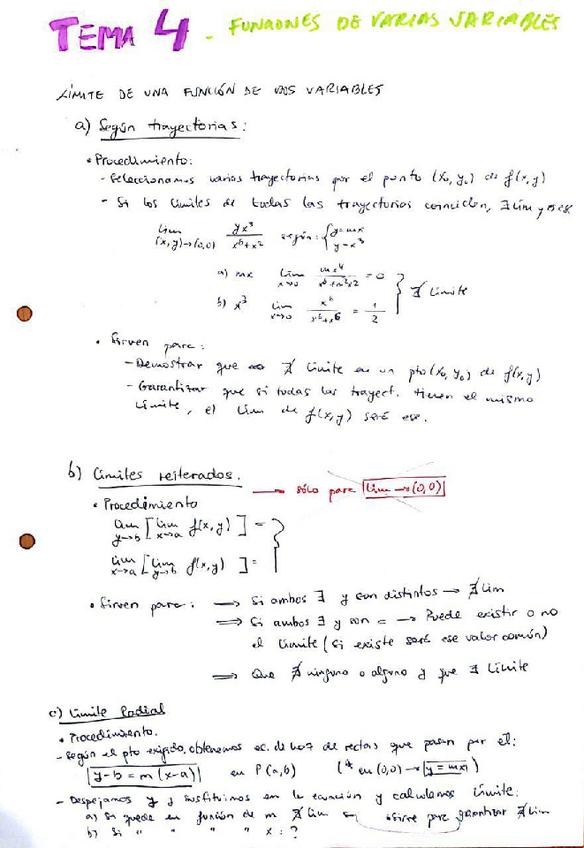 TEMA 4 - FUNCIONES DE VARIAS VARIABLES
LÍMITE DE UNA FUNCIÓN DE DOS VARIABLES
a) Según trayectorias:
• Procedimiento:
- Seleccionamos varias trayectorias por el punto (x₀, y₀) de f(x,y)
- Si los límites de todas las trayectorias coinciden, ∃ lim y es ese
lim (x,y)→(0,0) yx³/(x⁶+x²) según: { y=mx
y=x³
a) mx lim x→0 mx⁴/(x⁶+m²x²) = 0
b) x³ lim x→0 x⁶/(x⁶+x⁶) = 1/2 } ∄ límite
• Sirven para:
- Demostrar que ∄ límite en un pto (x₀, y₀) de f(x,y)
- Garantizar que si todas las trayect. tienen el mismo
límite, el lim de f(x,y) será ese.
b) Límites reiterados. → sólo para lim → (0,0)
• Procedimiento
lim y→b [lim x→a f(x,y)] =
lim x→a [lim y→b f(x,y)] = }
• Sirven para: ⇒ Si ambos ∃ y son distintos → ∄ lim
⇒ Si ambos ∃ y son = → Puede existir o no
el límite (si existe será ese valor común)
⇒ Que ∄ ninguno o alguno y que ∃ límite
c) Límite Radial
• Procedimiento.
- Según el pto exigido, obtenemos ec. de haz de rectas que pasan por él:
y-b = m(x-a) en P(a,b) (* en (0,0) → y=mx)
- Despejamos y y sustituimos en la ecuación y calculamos límite:
a) Si quede en función de m ∄ lim → sirve para garantizar ∄ lim
b) Si " " " " x : ?